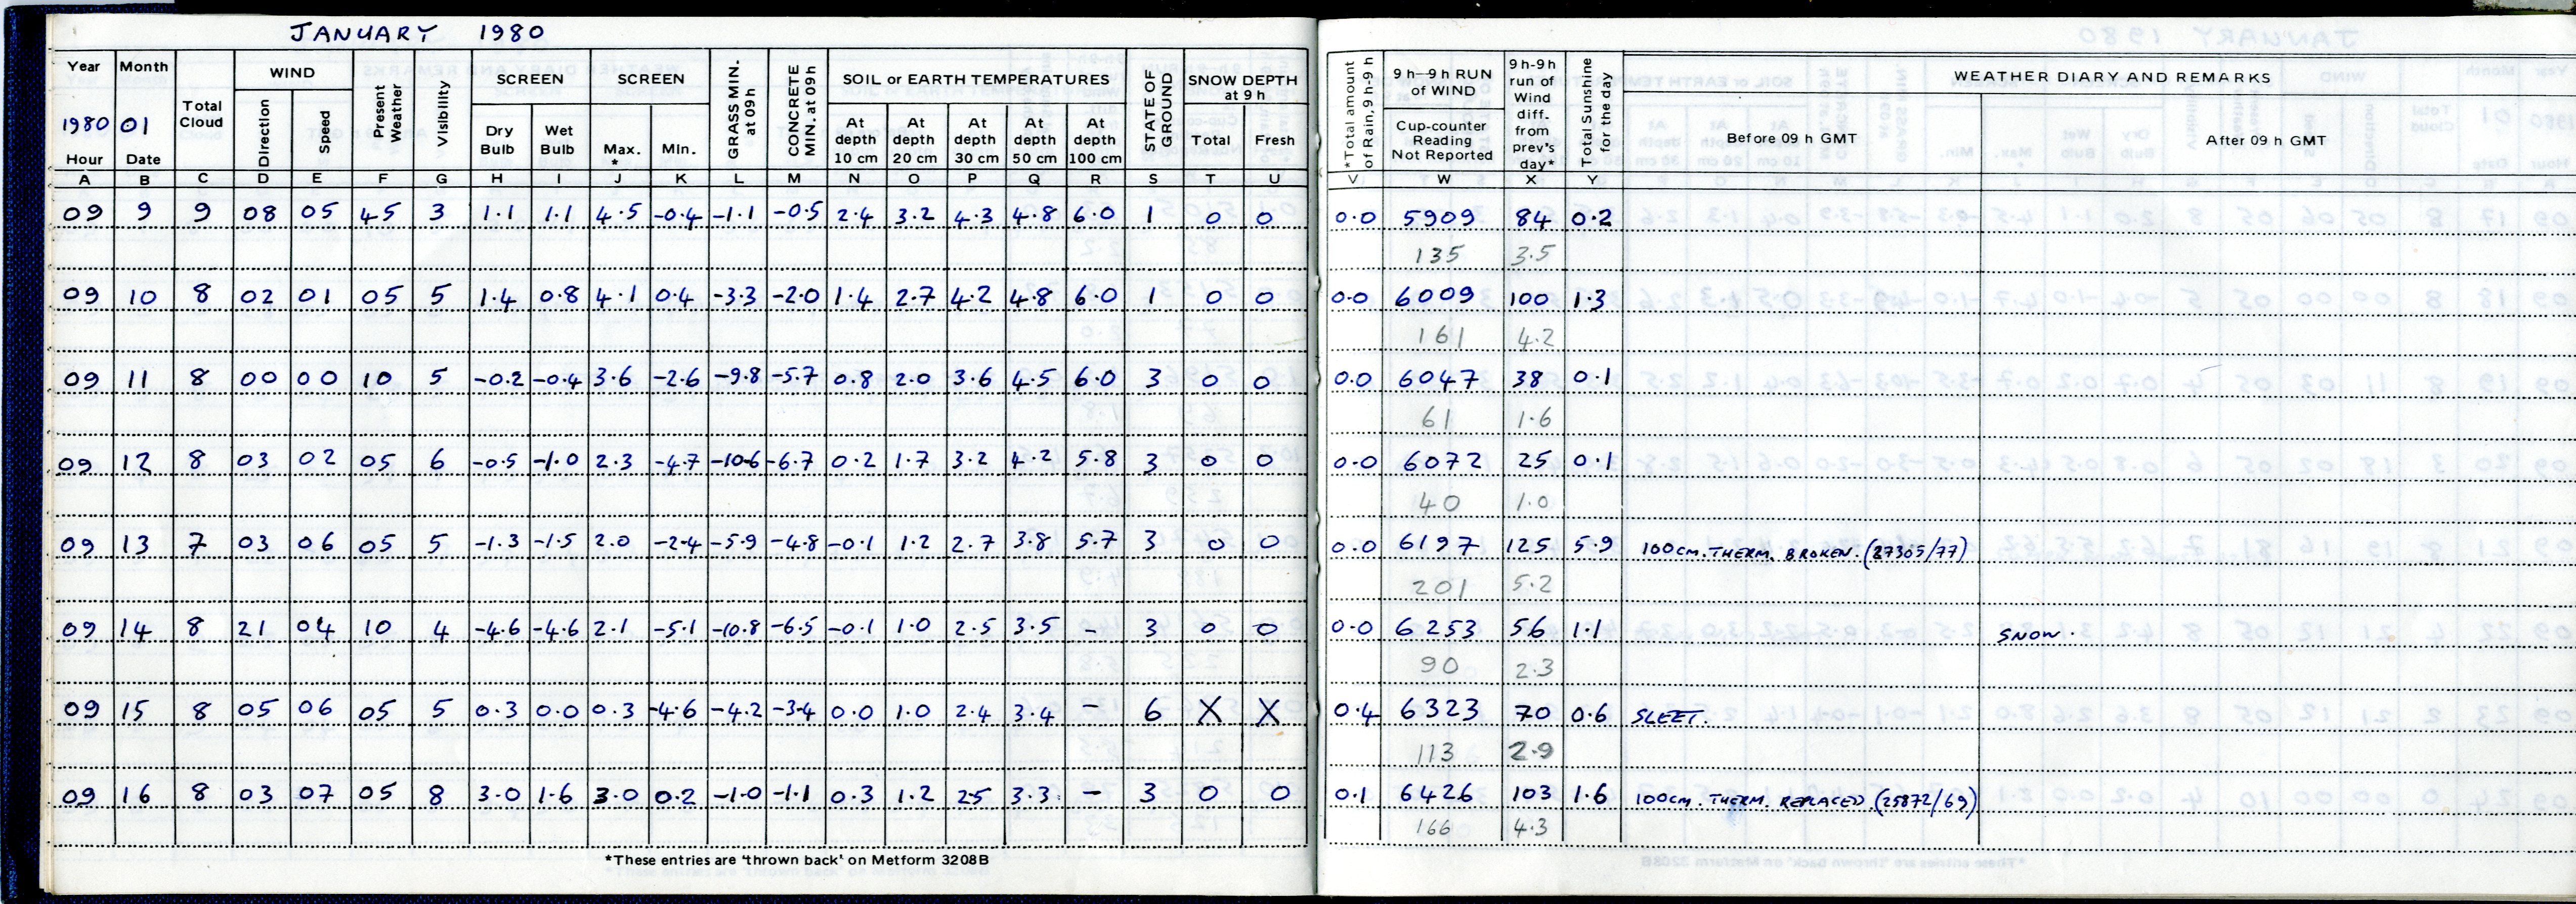 JANUARY 1980
Year Month Total Cloud WIND Direction Speed Present Weather Visibility SCREEN Dry Bulb Wet Bulb SCREEN Max. * Min. GRASS MIN. at 09h CONCRETE MIN. at 09h SOIL or EARTH TEMPERATURES At depth 10 cm At depth 20 cm At depth 30 cm At depth 50 cm At depth 100 cm STATE OF GROUND SNOW DEPTH at 9 h Total Fresh *Total amount of Rain, 9h-9h 9 h—9h RUN of WIND Cup-counter Reading Not Reported 9h-9h run of Wind diff. from prev's day* Total Sunshine for the day WEATHER DIARY AND REMARKS Before 09 h GMT After 09 h GMT
1980 01
Hour Date
A B C D E F G H I J K L M N O P Q R S T U V W X Y
09 9 9 08 05 45 3 1.1 1.1 4.5 -0.4 -1.1 -0.5 2.4 3.2 4.3 4.8 6.0 1 0 0 0.0 5909 84 0.2
135 3.5
09 10 8 02 01 05 5 1.4 0.8 4.1 0.4 -3.3 -2.0 1.4 2.7 4.2 4.8 6.0 1 0 0 0.0 6009 100 1.3
161 4.2
09 11 8 00 00 10 5 -0.2 -0.4 3.6 -2.6 -9.8 -5.7 0.8 2.0 3.6 4.5 6.0 3 0 0 0.0 6047 38 0.1
61 1.6
09 12 8 03 02 05 6 -0.5 -1.0 2.3 -4.7 -10.6 -6.7 0.2 1.7 3.2 4.2 5.8 3 0 0 0.0 6072 25 0.1
40 1.0
09 13 7 03 06 05 5 -1.3 -1.5 2.0 -2.4 -5.9 -4.8 -0.1 1.2 2.7 3.8 5.7 3 0 0 0.0 6197 125 5.9 100CM. THERM. BROKEN. (27305/77)
201 5.2
09 14 8 21 04 10 4 -4.6 -4.6 2.1 -5.1 -10.8 -6.5 -0.1 1.0 2.5 3.5 - 3 0 0 0.0 6253 56 1.1 SNOW.
90 2.3
09 15 8 05 06 05 5 0.3 0.0 0.3 -4.6 -4.2 -3.4 0.0 1.0 2.4 3.4 - 6 X X 0.4 6323 70 0.6 SLEET.
113 2.9
09 16 8 03 07 05 8 3.0 1.6 3.0 0.2 -1.0 -1.1 0.3 1.2 25 3.3 - 3 0 0 0.1 6426 103 1.6 100CM. THERM. REPLACED. (25872/69)
166 4.3
*These entries are 'thrown back' on Metform 3208B